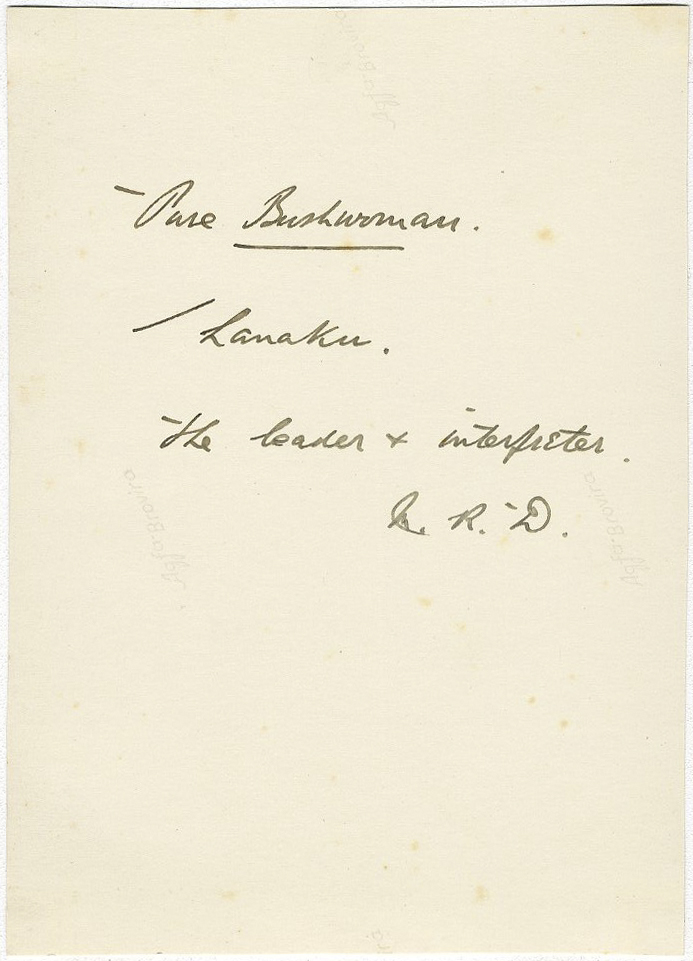 Agfa-Brovira
Pure Bushwoman.
/ Lanaku.
The leader & interpreter.
Agfa-Brovira
Agfa-Brovira
R. D.